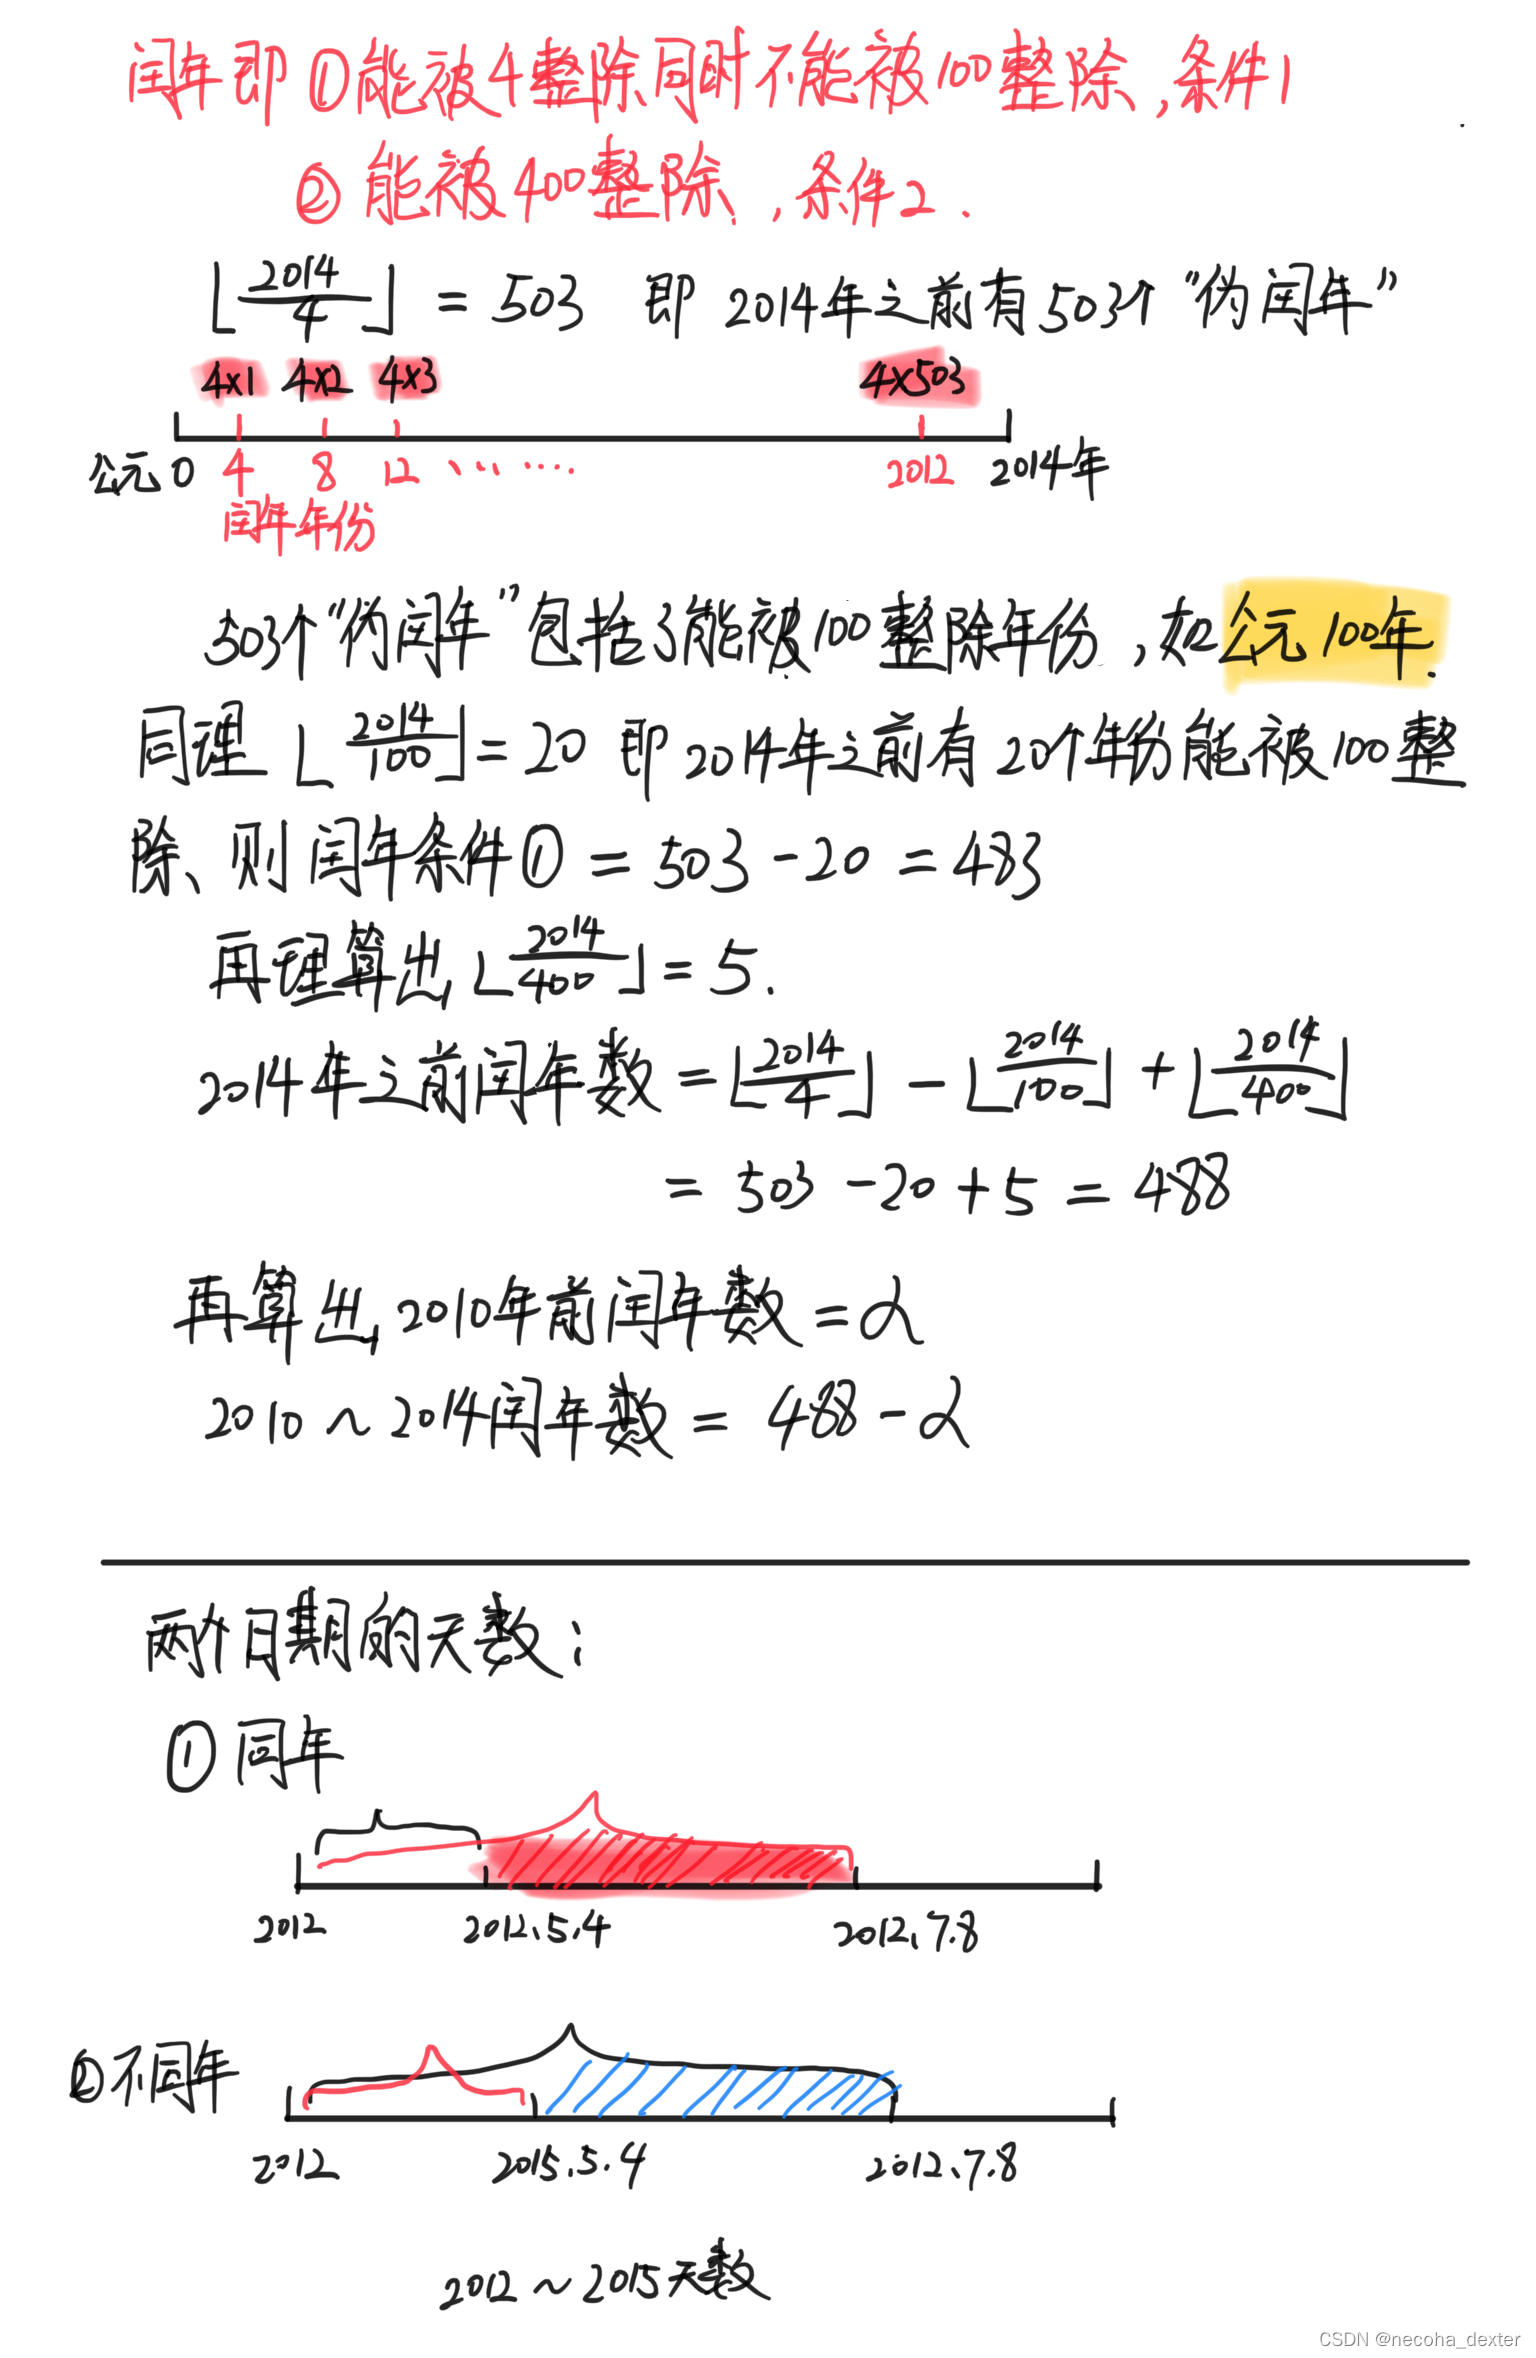 闰年即 ①能被4整除同时不能被100整除,条件1
② 能被400整除、,条件2.
⌊2014/4⌋ = 503 即 2014年之前有503个“伪闰年”
4×1 4×2 4×3 4×503
公元0 4 8 12 ...... 2012 2014年
闰年年份
503个“伪闰年”包括了能被100整除年份,如公元100年.
同理 ⌊2014/100⌋=20 即2014年之前有20个年份能被100整
除、则闰年条件① = 503-20 = 483
再理算出⌊2014/400⌋=5.
2014年之前闰年数=⌊2014/4⌋-⌊2014/100⌋+⌊2014/400⌋
= 503-20+5=488
再算出2010年前闰年数=α
2010~2014闰年数= 488-α
两个日期的天数:
① 同年
2012 2012.5.4 2012.7.8
②不同年
2012 2015.5.4 2012.7.8
2012~2015天数
CSDN @necoha_dexter